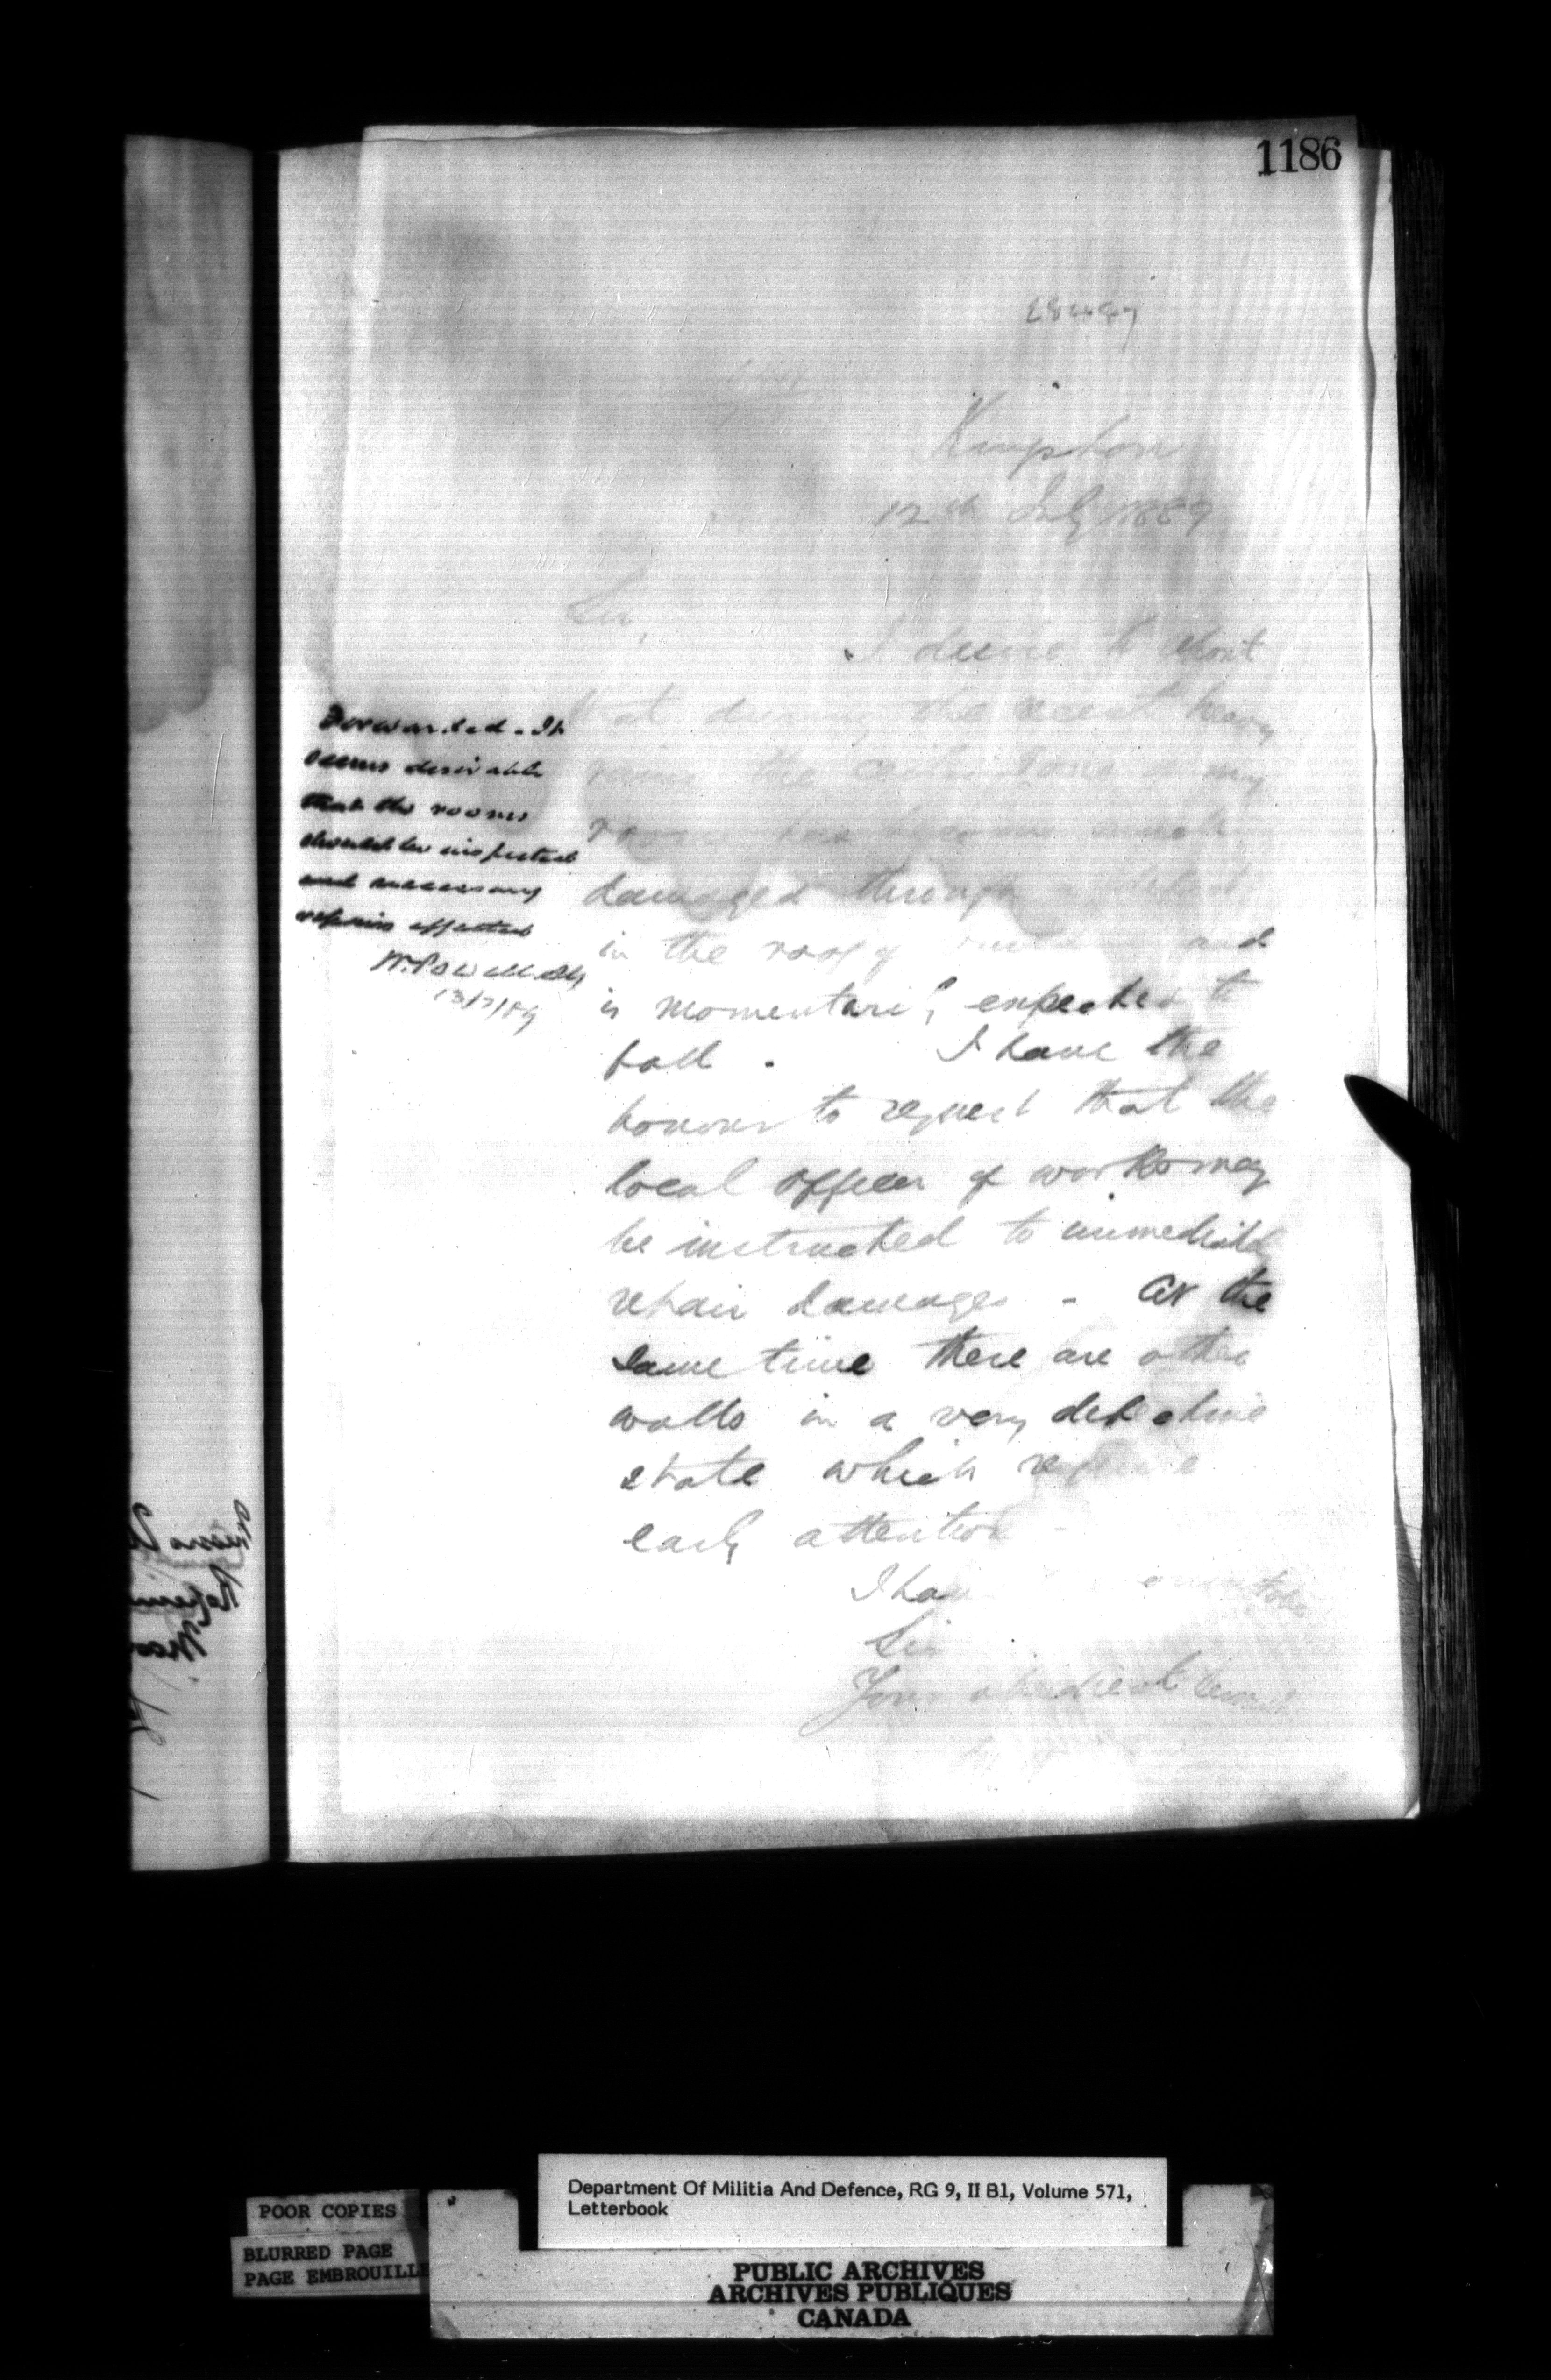 1186
Kingston
12th July 1889
Sir,
I desire to report
that during the recent heavy
rains the ceiling of one of my
rooms has become much
damaged through a defect
in the roof of and
is momentarily expected to
fall. I have the
honour to request that the
local officer of works may
be instructed to immediately
repair damages - At the
same time there are other
walls in a very defective
state which require
early attention
I have
Sir
Your obedient servant
Forwarded. It
seems desirable
that the rooms
should be inspected
and necessary
repairs effected
W. Powell
13/7/89
Department Of Militia And Defence, RG 9, II B1, Volume 571,
Letterbook
POOR COPIES
BLURRED PAGE
PAGE EMBROUILLE
PUBLIC ARCHIVES
ARCHIVES PUBLIQUES
CANADA